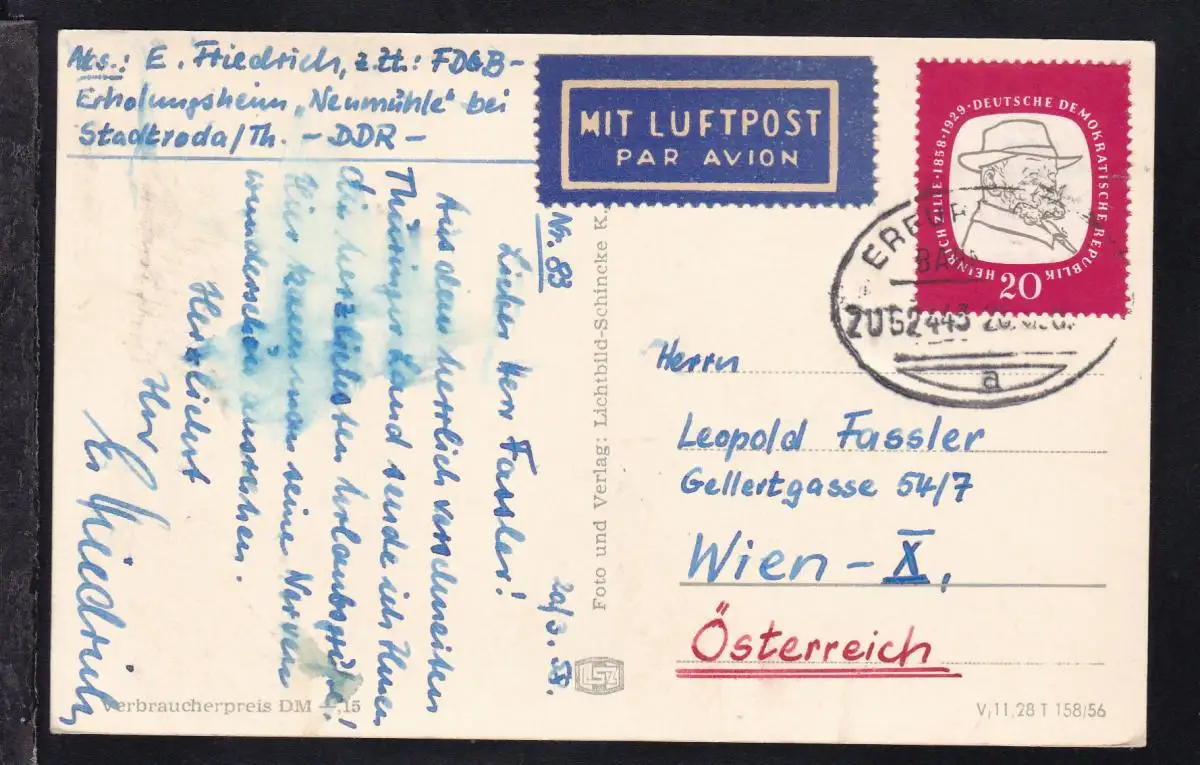 Abs.: E. Friedrich, z.Zt.: FDGB-
Erholungsheim „Neumühle" bei
Stadtroda/Th. - DDR -
MIT LUFTPOST
PAR AVION
HEINRICH ZILLE · 1858-1929 · DEUTSCHE DEMOKRATISCHE REPUBLIK
20
ERFURT
BA
ZUG2443
a
Nr. 83
20/3. 58.
Lieber Herr Fassler!
Aus dem herrlich verschneiten
Thüringer Land sende ich Ihnen
die herzlichsten Urlaubsgrüße!
Hier kann man seine Nerven
wunderschön ausruhen.
Herzlichst
Ihr
E. Friedrich
Foto und Verlag: Lichtbild-Schincke K.
Herrn
Leopold Fassler
Gellertgasse 54/7
Wien - X,
Österreich
Verbraucherpreis DM -,15
V,11,28 T 158/56